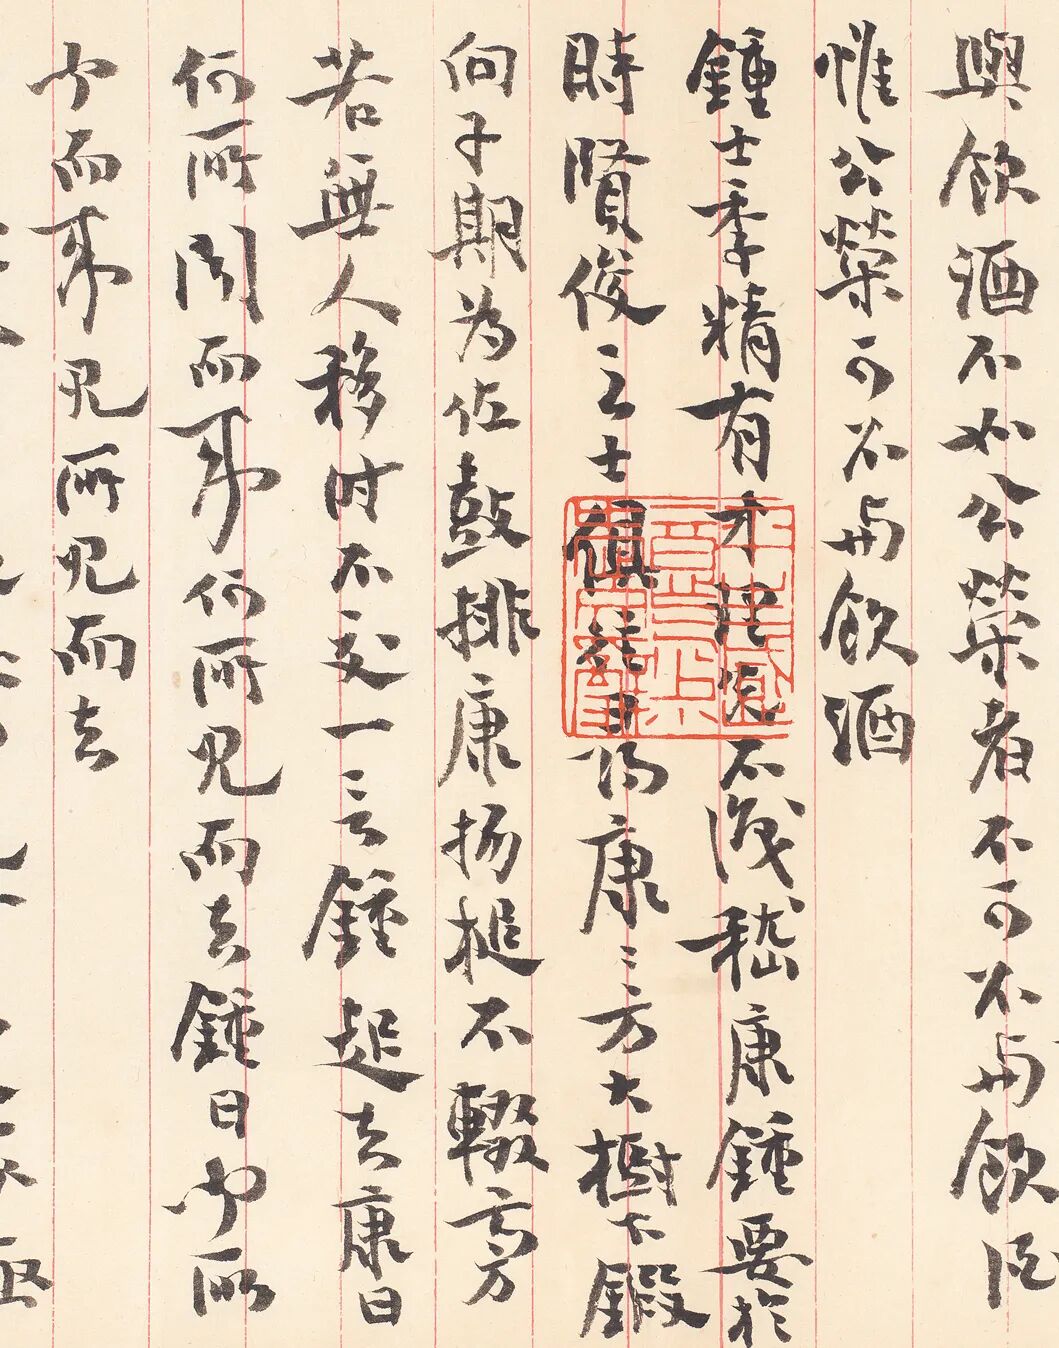 與飲酒不如公榮者不可不與飲酒
惟公榮可不與飲酒
鍾士季精有才理先不識嵇康鍾要於
時賢俊之士俱康〻方大樹下鍛
向子期為佐鼓排康揚槌不輟旁
若無人移時不交一言鍾起去康曰
何所聞而來何所見而去鍾曰聞所
聞而來見所見而去